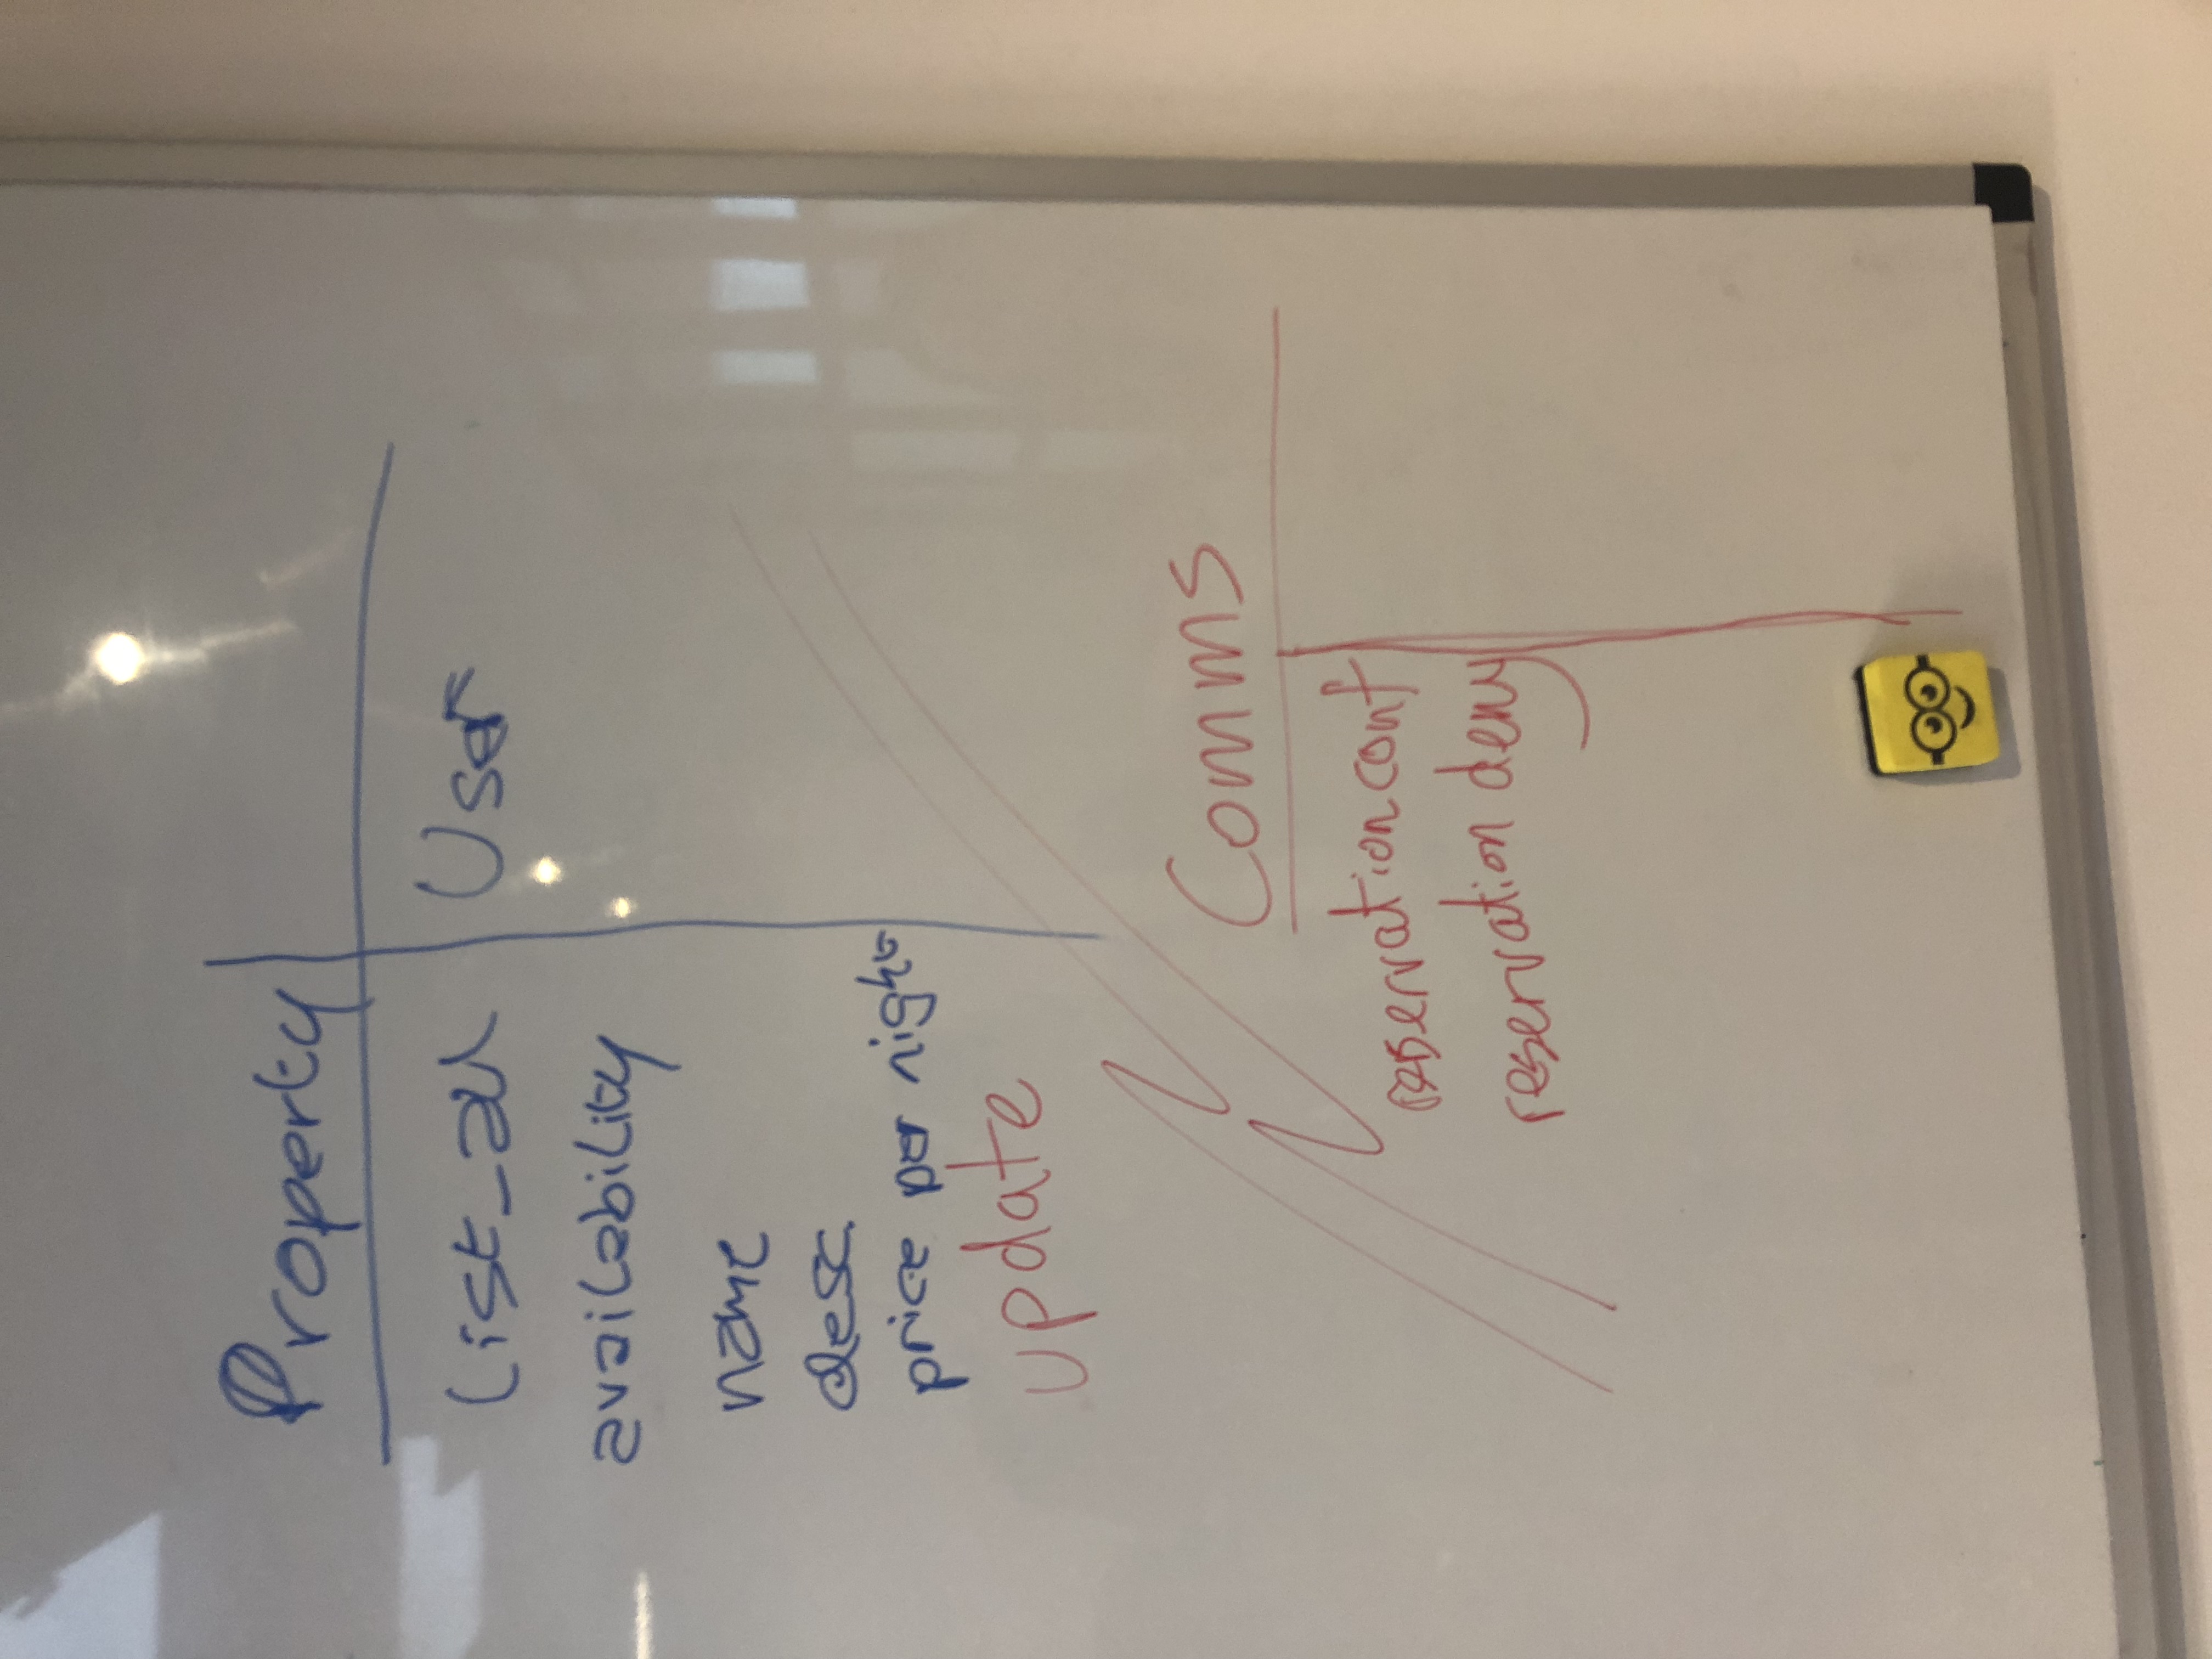 Property
list_all User
availability
name
desc.
price per night
update
Comms
reservation conf
reservation deny